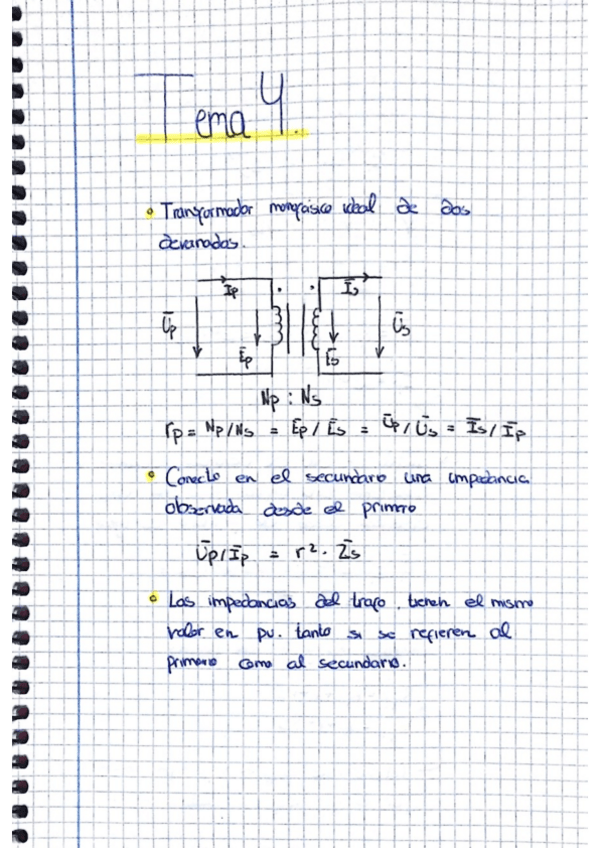 Tema 4.
• Transformador monofásico ideal de dos
devanados.
I̅p I̅s
U̅p E̅p E̅s U̅s
Np : Ns
rp = Np/Ns = E̅p/E̅s = U̅p/U̅s = I̅s/I̅p
• Conecto en el secundaro una impedancia
observada desde el primero
U̅p/I̅p = r². Z̅s
• Las impedancias del trafo. tienen el mismo
valor en pu. tanto si se refieren al
primario como al secundario.